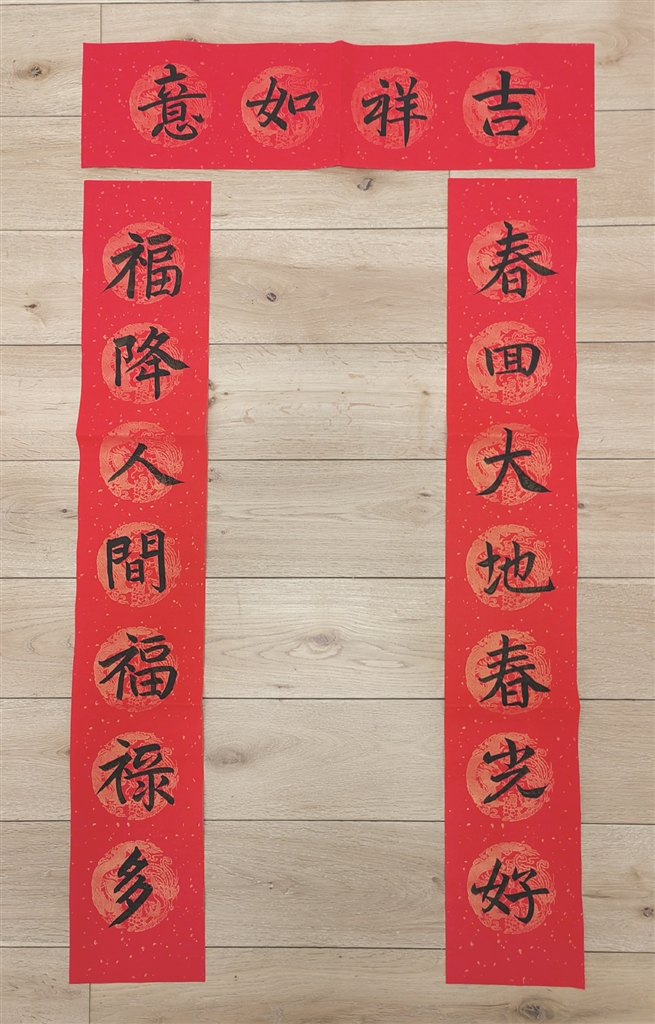 吉祥如意
春回大地春光好
福降人間福祿多